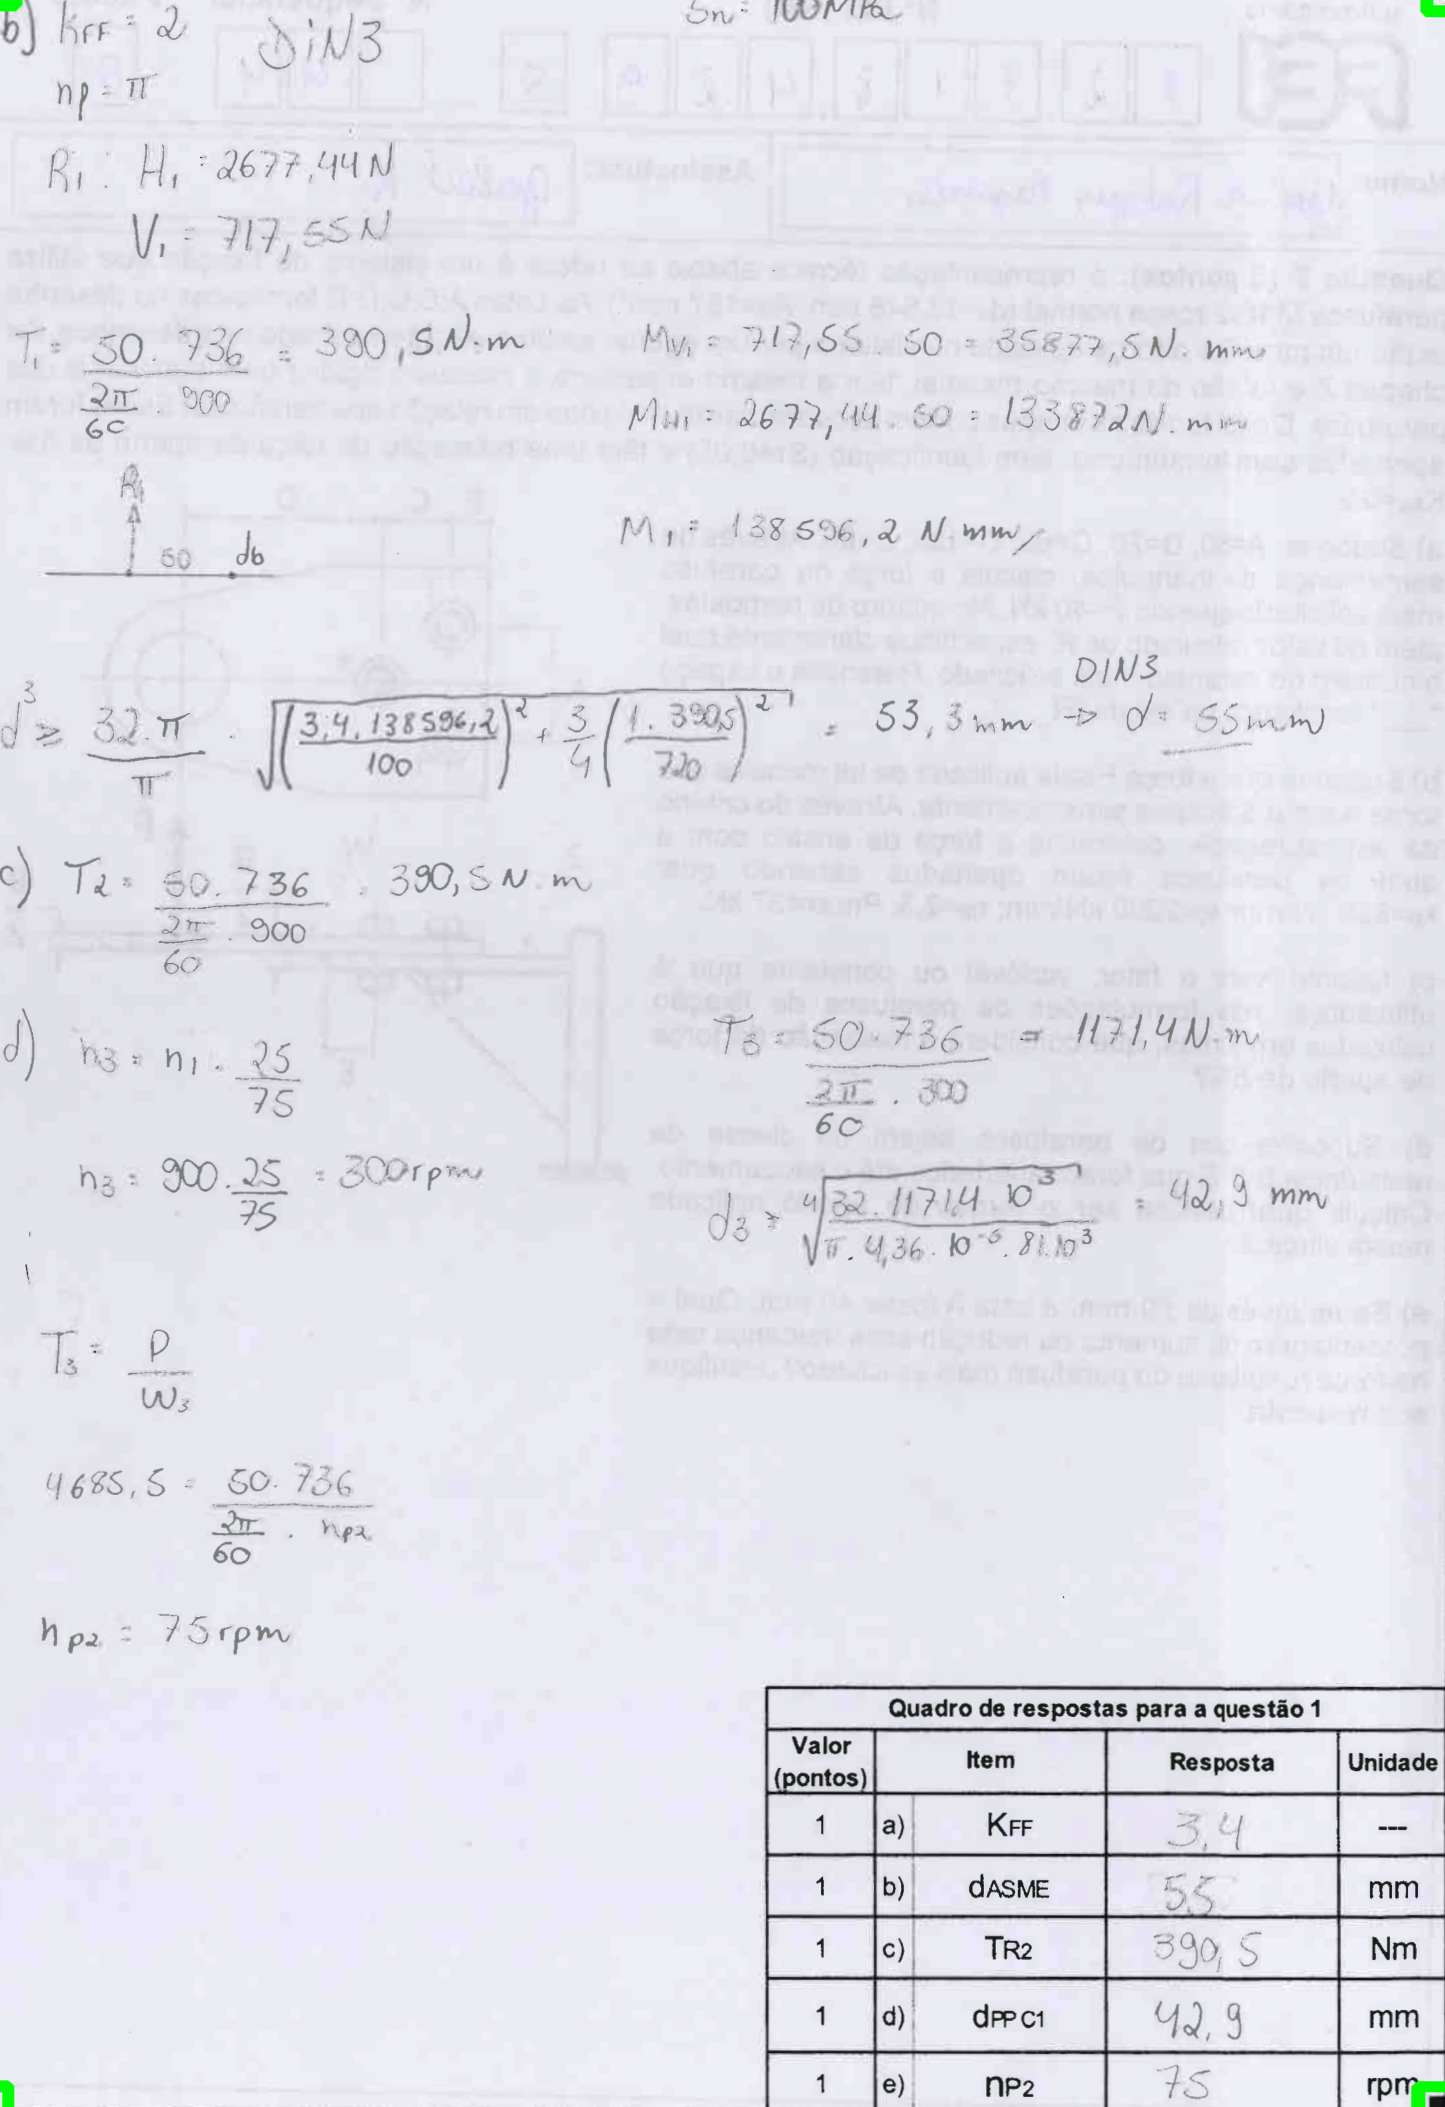 b) KFF = 2 DIN3 Sn = 100MPa
np = π
R1 : H1 = 2677,44N
V1 = 717,55N
T1 = 50. 736 / (2π/60 . 900) = 390,5N.m
MV1 = 717,55 . 50 = 35877,5N. mm
MH1 = 2677,44 . 50 = 133872N. mm
M1 = 138596,2 N mm
R1
50 db
d³ ≥ 32.π / π . √((3,4.138596,2 / 100)² + 3/4 (1. 390,5 / 720)²) = 53,3mm → d = 55mm
DIN3
c) T2 = 50. 736 / (2π/60 . 900) = 390,5 N m
d) n3 = n1 . 25/75
T3 = 50. 736 / (2π/60 . 300) = 1171,4N.m
n3 = 900. 25/75 = 300rpm
d3 = ⁴√(32. 1171,4 10³ / π. 4,36. 10⁻⁵. 81.10³) = 42,9 mm
T3 = P / W3
4685,5 = 50. 736 / (2π/60 . np2)
np2 = 75rpm
Quadro de respostas para a questão 1
Valor (pontos) Item Resposta Unidade
1 a) KFF 3,4 ---
1 b) dASME 55 mm
1 c) TR2 390,5 Nm
1 d) dPP C1 42,9 mm
1 e) nP2 75 rpm